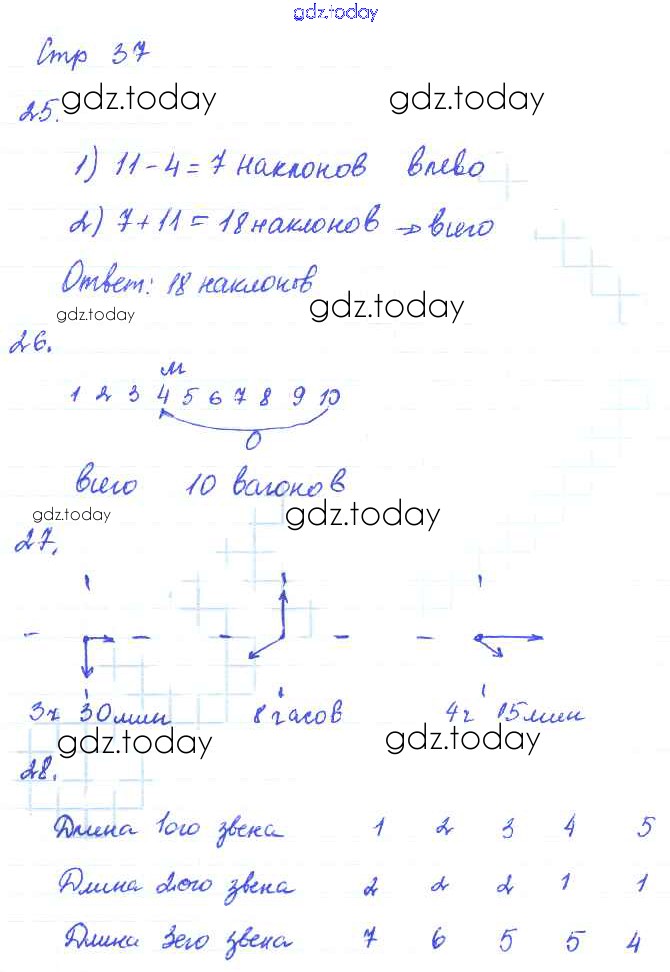 gdz.today
Стр 37
25.
gdz.today gdz.today
1) 11 - 4 = 7 наклонов влево
2) 7 + 11 = 18 наклонов → всего
Ответ: 18 наклонов
gdz.today gdz.today
26.
м
1 2 3 4 5 6 7 8 9 10
О
всего 10 вагонов
gdz.today gdz.today
27.
3ч 30мин 8 часов 4ч 15мин
gdz.today gdz.today
28.
Длина 1ого звена 1 2 3 4 5
Длина 2ого звена 2 2 2 1 1
Длина 3его звена 7 6 5 5 4